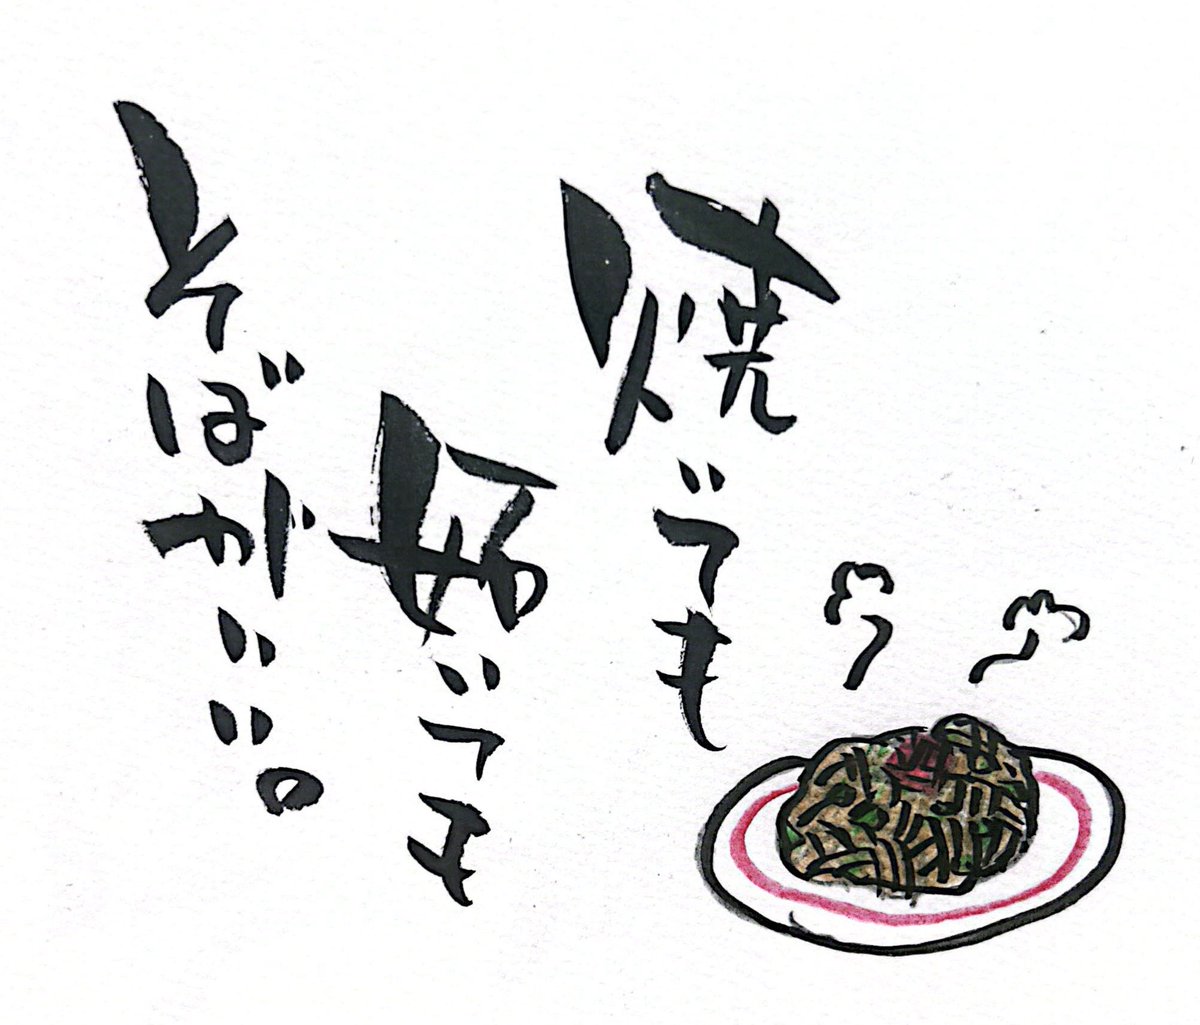 焼いても
妬いても
そばがいい。